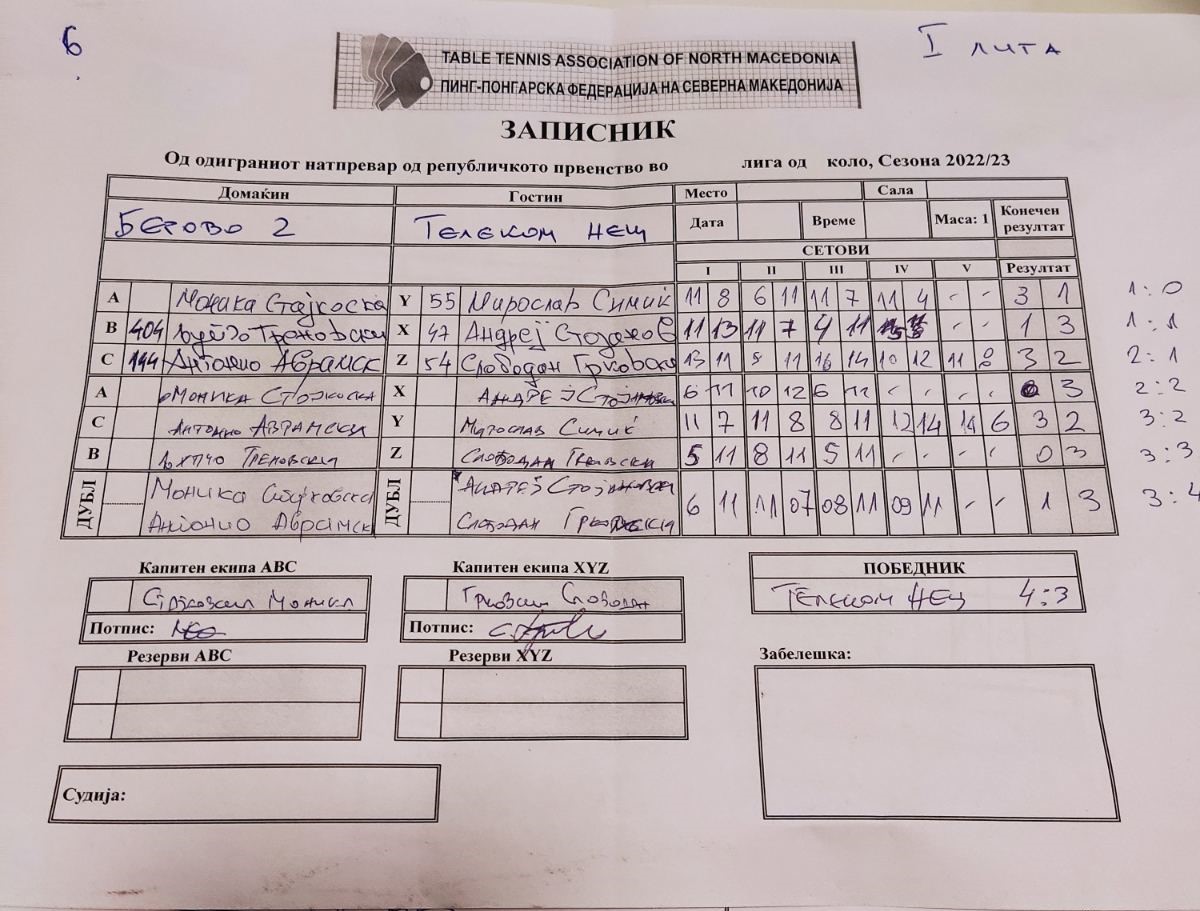 6
I ЛИГА
TABLE TENNIS ASSOCIATION OF NORTH MACEDONIA
ПИНГ-ПОНГАРСКА ФЕДЕРАЦИЈА НА СЕВЕРНА МАКЕДОНИЈА
ЗАПИСНИК
Од одиграниот натпревар од републичкото првенство во лига од коло, Сезона 2022/23
Домаќин Гостин Место Сала
БЕРОВО 2 ТЕЛЕКОМ НЕЦ Дата Време Маса: 1 Конечен резултат
СЕТОВИ
I II III IV V Резултат
A Моника Стојкоска Y 55 Мирослав Симиќ 11 8 6 11 11 7 11 4 - - 3 1 1:0
B 404 Треновски X 47 Андреј 11 13 11 7 4 11 - - 1 3 1:1
C 144 Антонио Аврамск Z 54 Слободан Грковски 13 11 11 16 14 10 12 11 3 2 2:1
A Моника Стојкоска X АНДРЕЈ 6 11 10 12 6 - - - - 3 2:2
C Антонио Аврамски Y Мирослав Симиќ 11 7 11 8 8 11 12 14 14 6 3 2 3:2
B Треновски Z Слободан Грковски 5 11 8 11 5 11 - - - - 0 3 3:3
ДУБЛ Моника ДУБЛ АНДРЕЈ 6 11 11 07 08 11 09 11 - - 1 3 3:4
Антонио Аврамск Слободан
Капитен екипа ABC Капитен екипа XYZ ПОБЕДНИК
Моника Грковски Слободан ТЕЛЕКОМ НЕЦ 4:3
Потпис: Потпис:
Резерви ABC Резерви XYZ Забелешка:
Судија: